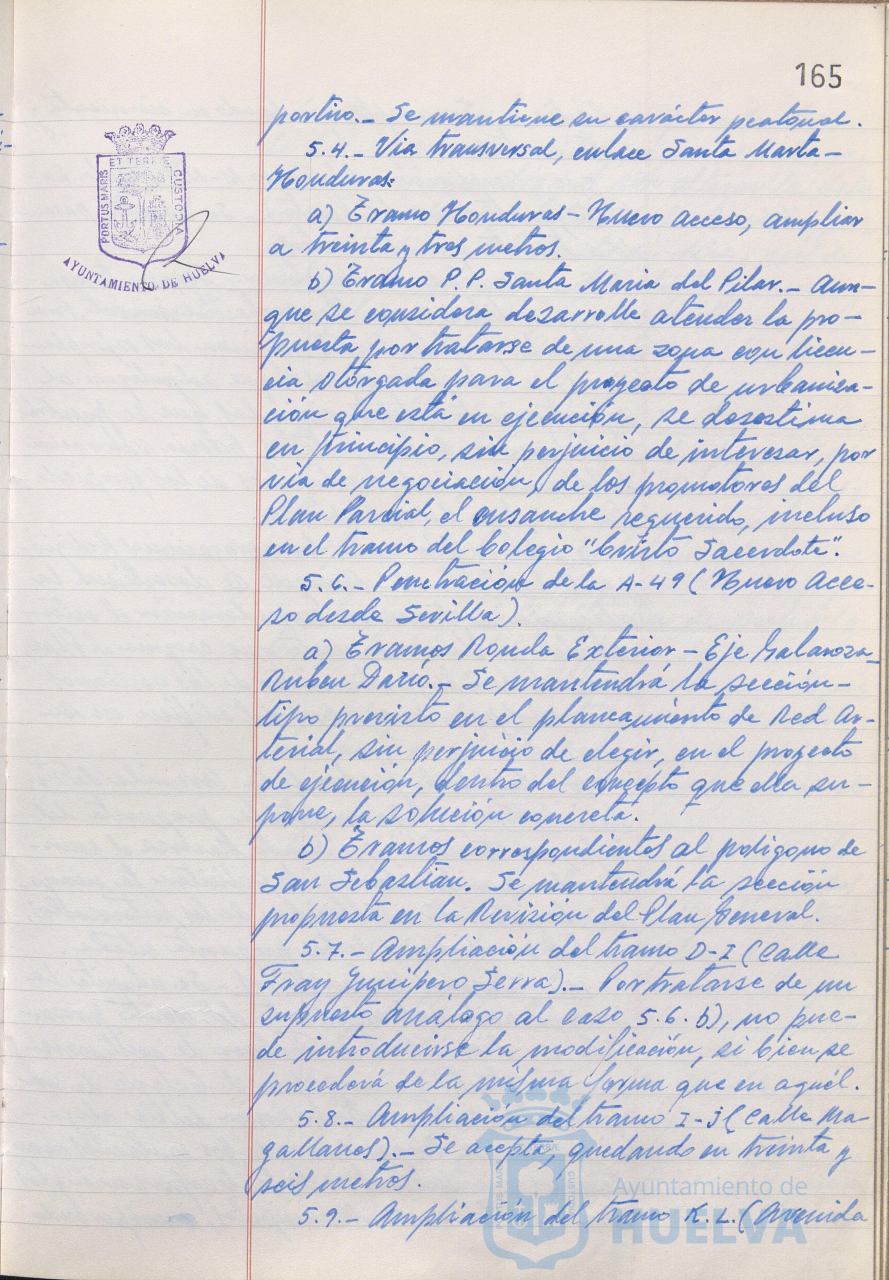 165
portivo.- Se mantiene su carácter peatonal.
5.4.- Via transversal, enlace Santa Marta-
Honduras:
a) Tramo Honduras-Nuevo Acceso, ampliar
a treinta y tres metros.
b) Tramo P.P. Santa Maria del Pilar.- Aun-
que se considera desarrolle atender la pro-
puesta por tratarse de una zona con licen-
cia otorgada para el proyecto de urbaniza-
ción que está en ejecución, se desestima
en principio, sin perjuicio de interesar, por
via de negociación, de los promotores del
Plan Parcial, el ensanche requerido, incluso
en el tramo del Colegio "Cristo Sacerdote".
5.6.- Penetración de la A-49 (Nuevo Acce-
so desde Sevilla).
a) Tramos Ronda Exterior - Eje Galaroza-
Ruben Darió.- Se mantendrá la sección-
tipo previsto en el planeamiento de Red Ar-
terial, sin perjuicio de elegir, en el proyecto
de ejecución, dentro del concepto que ella su-
pone, la solución concreta.
b) Tramos correspondientes al poligono de
San Sebastian. Se mantendrá la sección
propuesta en la Revisión del Plan General.
5.7.- Ampliación del tramo D-I (Calle
Fray Junípero Serra).- Por tratarse de un
supuesto análogo al caso 5.6.b), no pue-
de introducirse la modificación, si bien se
procederá de la misma forma que en aquél.
5.8.- Ampliación del tramo I-J (Calle Ma-
gallanes).- Se acepta, quedando en treinta y
seis metros.
5.9.- Ampliación del tramo K.L. (Avenida
PORTUS MARIS ET TERRE CUSTODIA
AYUNTAMIENTO DE HUELVA
Ayuntamiento de
HUELVA